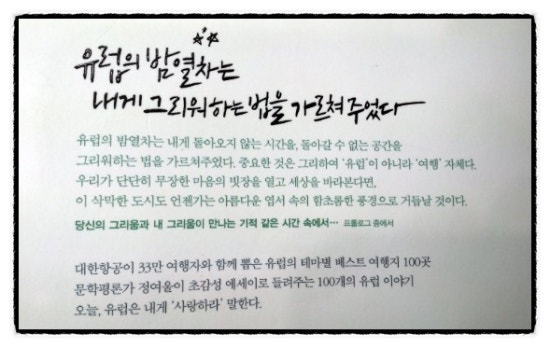 유럽의 밤열차는
내게 그리워하는 법을 가르쳐 주었다
유럽의 밤열차는 내게 돌아오지 않는 시간을, 돌아갈 수 없는 공간을
그리워하는 법을 가르쳐주었다. 중요한 것은 그리하여 '유럽'이 아니라 '여행' 자체다.
우리가 단단히 무장한 마음의 빗장을 열고 세상을 바라본다면,
이 삭막한 도시도 언젠가는 아름다운 엽서 속의 함초롬한 풍경으로 거듭날 것이다.
당신의 그리움과 내 그리움이 만나는 기적 같은 시간 속에서… 프롤로그 중에서
대한항공이 33만 여행자와 함께 뽑은 유럽의 테마별 베스트 여행지 100곳
문학평론가 정여울이 초감성 에세이로 들려주는 100개의 유럽 이야기
오늘, 유럽은 내게 '사랑하라' 말한다.